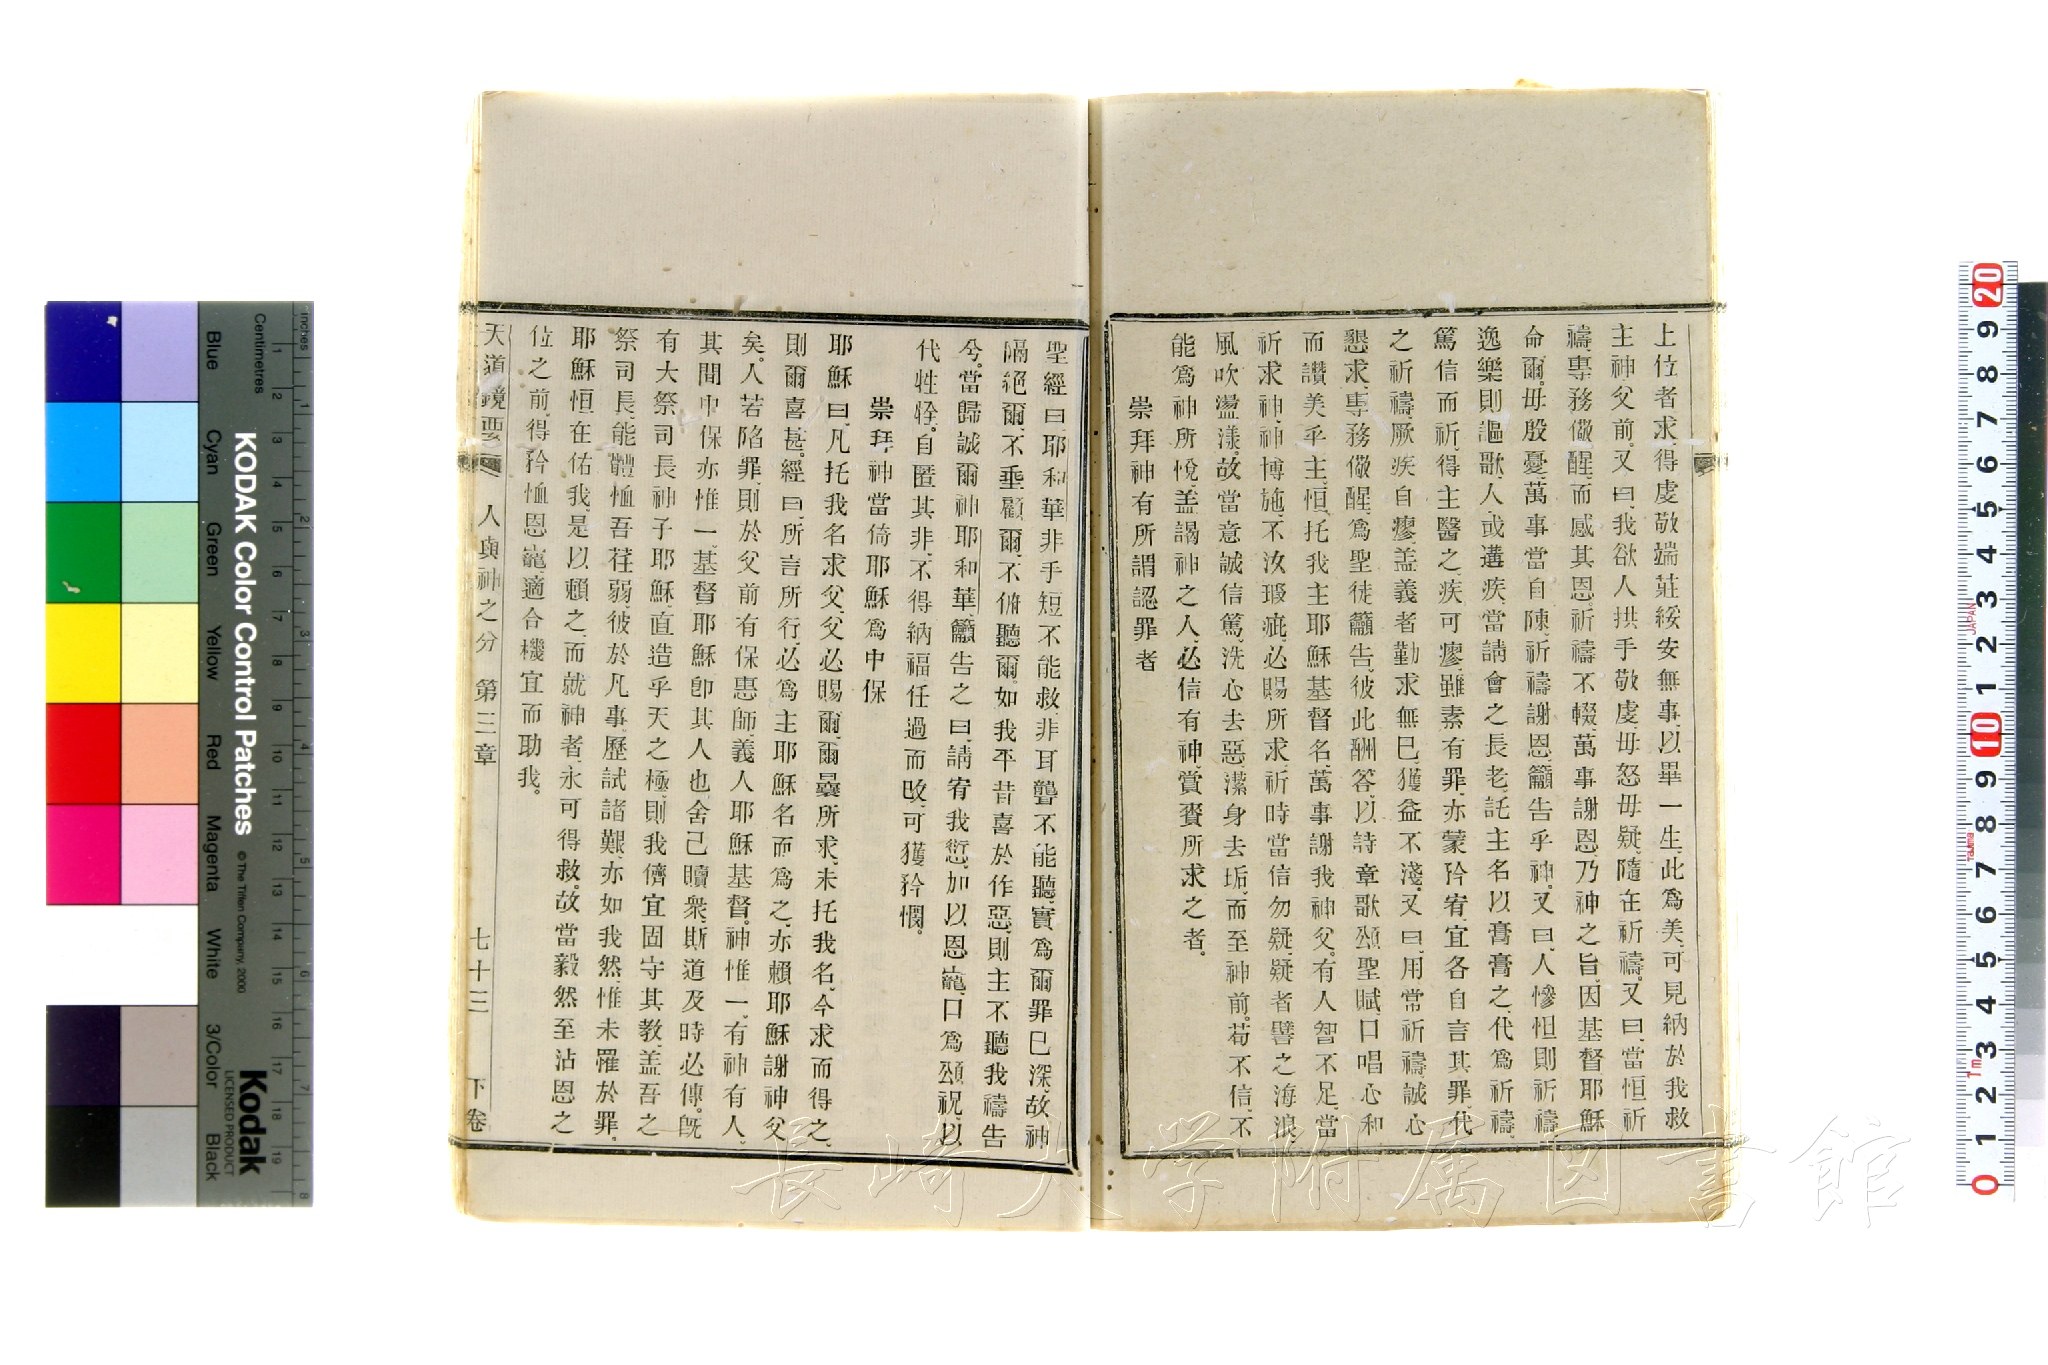 上位者求、得虔敬端莊綏安無事、以畢一生、此爲美、可見納於我救
主神父前。又曰、我欲人拱手敬虔、毋怒毋疑、隨在祈禱。又曰、當恒祈
禱、專務儆醒、而感其恩。祈禱不輟、萬事謝恩、乃神之旨、因基督耶穌
命爾。毋殷憂、萬事當自陳、祈禱謝恩、籲告乎神。又曰、人慘怛則祈禱
逸樂則謳歌、人或遘疾、當請會之長老、託主名以膏膏之、代爲祈禱、
篤信而祈、得主醫之、疾可瘳、雖素有罪、亦蒙矜宥、宜各自言其罪、代
之祈禱、厥疾自瘳、盖義者勤求無已、獲益不淺。又曰、用常祈禱、誠心
懇求、專務儆醒、爲聖徒籲告、彼此酬答、以詩章歌頌聖賦、口唱心和
而讚美乎主、恒托我主耶穌基督名、萬事謝我神父。有人智不足、當
祈求神、神博施、不汝瑕疵、必賜所求、祈時當信勿疑、疑者譬之海浪、
風吹盪漾。故當意誠信篤、洗心去惡、潔身去垢、而至神前。苟不信、不
能爲神所悅、盖謁神之人、必信有神、賞賚所求之者。
崇拜神有所謂認罪者
聖經曰、耶和華非手短不能救、非耳聾不能聽、實爲爾罪已深、故神
隔絕爾、不垂顧爾、不俯聽爾。如我平昔喜於作惡、則主不聽我禱告
兮。當歸誠爾神耶和華、籲告之曰、請宥我愆、加以恩寵、口爲頌祝、以
代牲牷。自匿其非、不得納福、任過而改、可獲矜憫。
崇拜神當倚耶穌爲中保
耶穌曰、凡托我名求父、父必賜爾、爾曩所求、未托我名、今求而得之、
則爾喜甚。經曰、所言所行、必爲主耶穌名而爲之、亦賴耶穌謝神父
矣。人若陷罪、則於父前有保惠師、義人耶穌基督。神惟一、有神有人、
其間中保亦惟一、基督耶穌卽其人也、舍己贖衆、斯道及時必傳。旣
有大祭司長、神子耶穌、直造乎天之極、則我儕宜固守其教、盖吾之
祭司長、能體恤吾荏弱、彼於凡事、歷試諸艱、亦如我然、惟未罹於罪。
耶穌恒在佑我、是以賴之而就神者、永可得救。故當毅然至沾恩之
位之前、得矜恤恩寵、適合機宜而助我。
天道鏡要 人與神之分 第三章 七十三 下卷
KODAK Color Control Patches © The Tiffen Company, 2000
Kodak
LICENSED PRODUCT
inches
Centimetres
Blue Cyan Green Yellow Red Magenta White 3/Color Black
長崎大学附属図書館